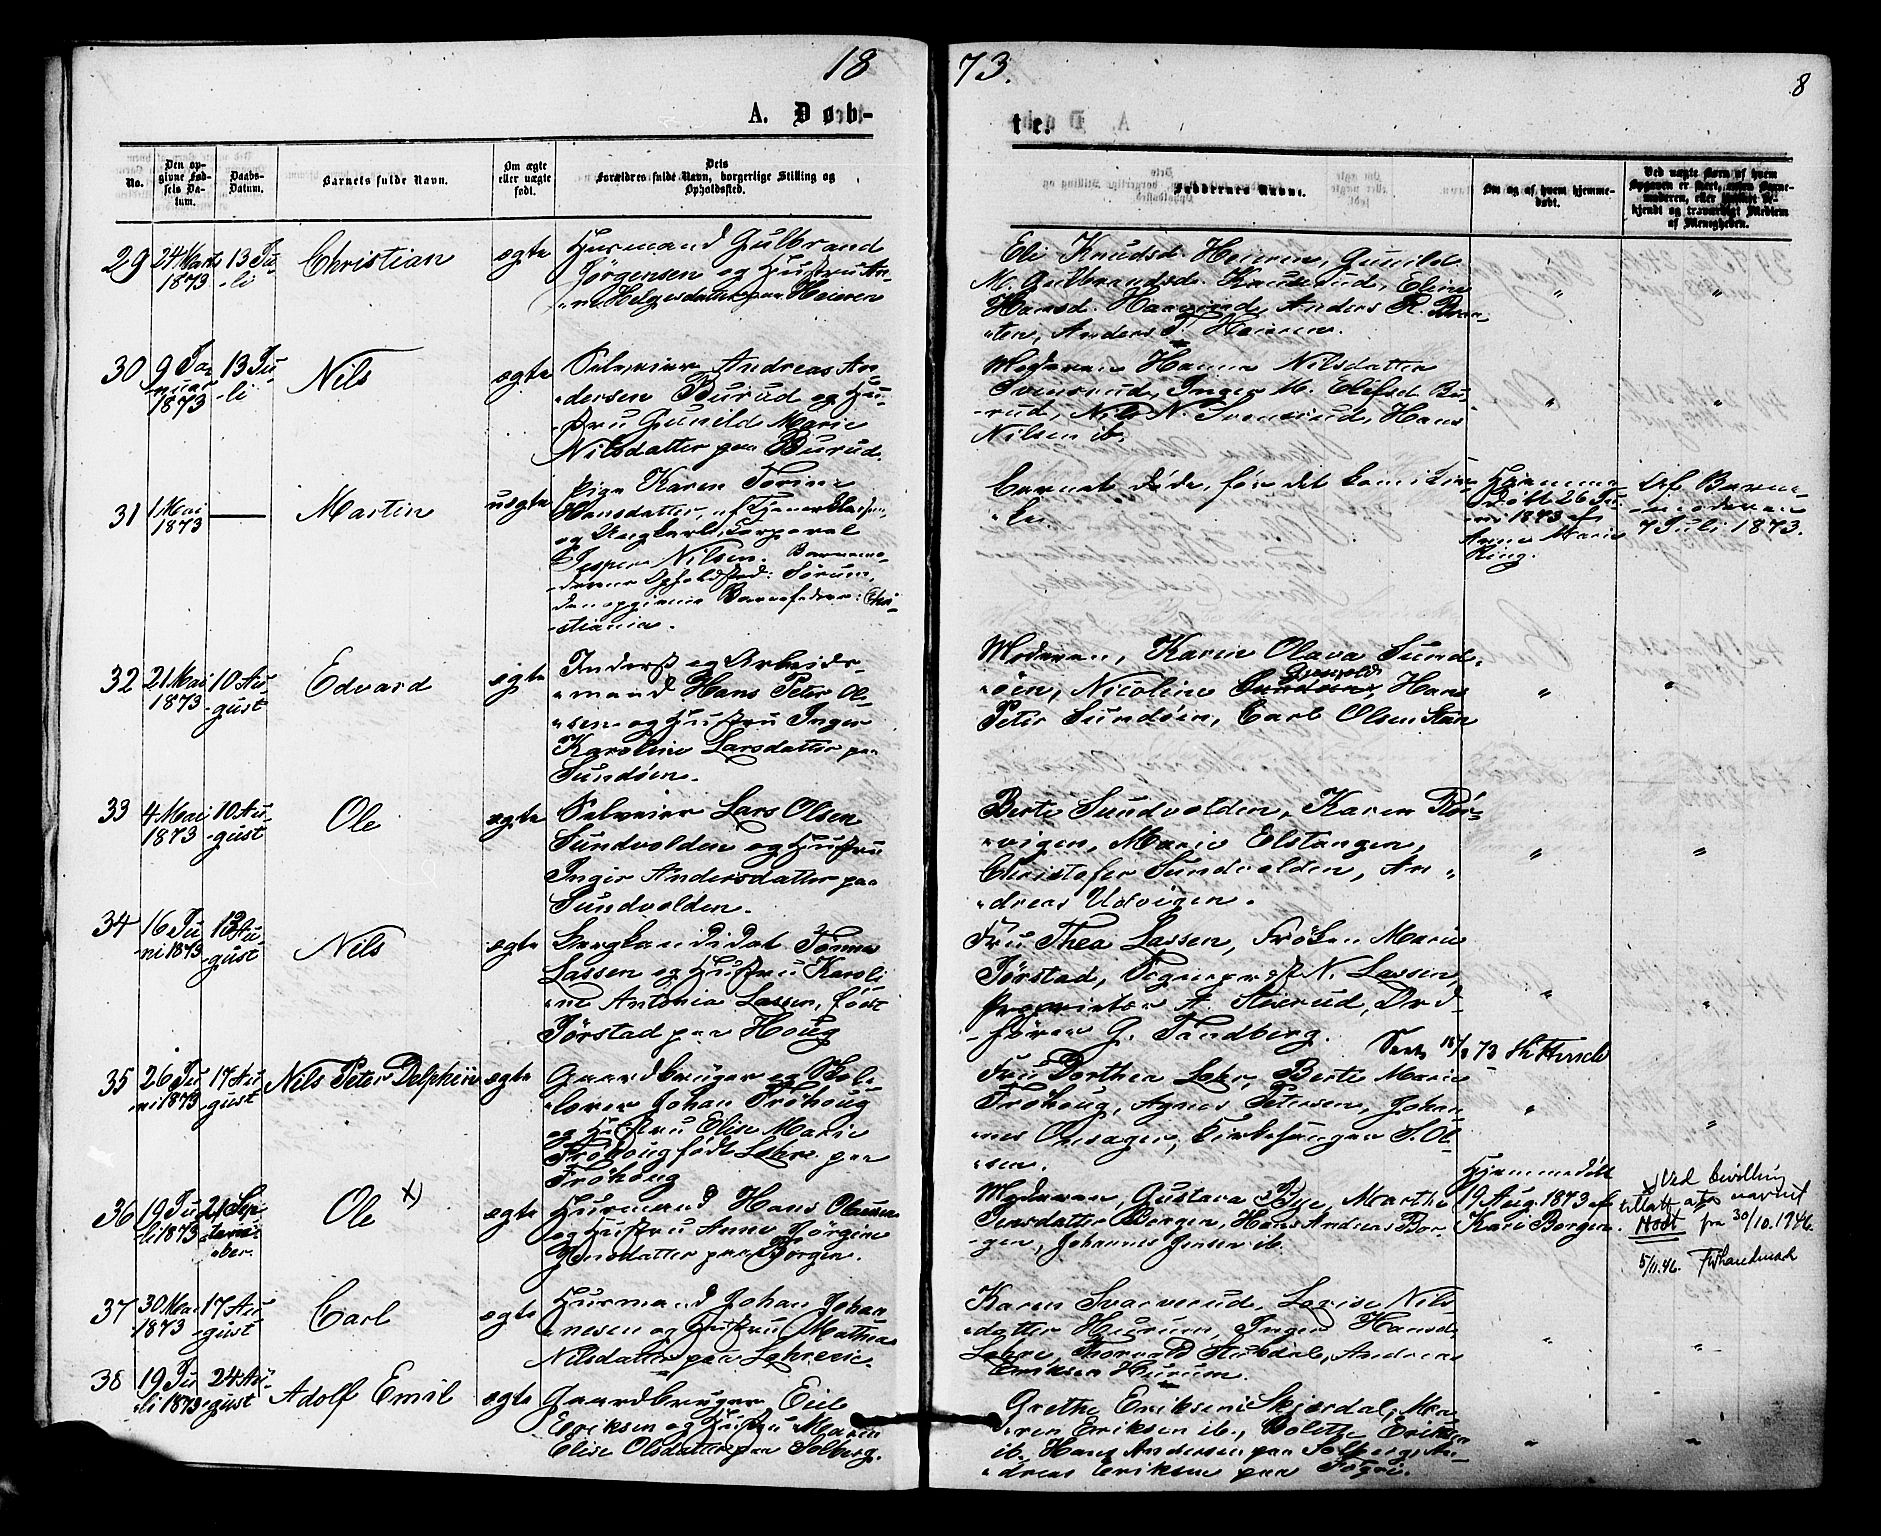 18
73.
8
A. Døb-
te.
No.
Den op-
givne Fød-
sels Da-
tum.
Daabs-
Datum.
Barnets fulde Navn.
Om ægte
eller uægte
født.
Dets
Forældres fulde Navn, borgerlige Stilling og
Opholdssted.
Faddernes Navne.
Om og af hvem hjemme-
døbt.
Ved uægte Børn af hvem
Opgaven er skeet, enten Barne-
moderen, eller hvilket be-
kjendt og troværdigt Medlem
af Menigheden.
29
24 Marts
1873
13 Ju-
-li
Christian
ægte
Husmand Gulbrand
Jørgensen og Hustru An-
-ne Helgesdatter paa Heieren
Eli Knudsd. Heieren, Gunild
M. Gulbrandsd. Knuserud, Eline
Hansd. Anders R.
Anders T. Heieren.
"
"
30
9 Ja-
-nuar
1873
13 Ju-
-li
Nils
ægte
Selveier Andreas An-
-dersen Burud og Hu-
-stru Gunild Marie
Nilsdatter paa Burud.
Moderen Hanna Nilsdatter
Svenserud, Inger M. Elifsd. Bu-
-rud, Nils N. Svenserud, Hans
Nilsen ib.
"
"
31
1 Mai
1873
—
Martin
uægte
Pige Karen Torine
Hansdatter,
og Ungkarl, Corporal
Jesper Nilsen. Barnemo-
-derens Opholdssted: Sørum,
den opgivne Barnefader: Chri-
-stiania.
Barnet døde, før det kom i Kir-
-ken.
Hjemme-
døbt 26 Ju-
-ni 1873 af
Anne Marie
Ring.
Af Barne-
-moderen
7 Juli 1873.
32
21 Mai
1873
10 Au-
-gust
Edvard
ægte
Inderst og Arbeids-
-mand Hans Peter Ol-
-sen og Hustru Inger
Karoline Larsdatter paa
Sundøen.
Moderen, Karen Olava Sund-
-øen, Nicoline Hans
Peter Sundøen, Carl Olsen
"
"
33
4 Mai
1873
10 Au-
-gust
Ole
ægte
Selveier Lars Olsen
Sundvolden og Hustru
Inger Andersdatter paa
Sundvolden.
Berte Sundvolden, Karen Rør-
-vigen, Marie Elstangen,
Christofer Sundvolden, An-
-dreas Utvigen.
"
"
34
16 Ju-
-ni 1873
Au-
-gust
Nils
ægte
Tønnes
Lassen og Hustru Karoli-
-ne Antonia Lassen, født
Jørstad paa Houg
Fru Thea Lassen, Frøken Marie
Jørstad, Sogneprest N. Lassen,
Proprietær A. Ord-
-fører G. Tandberg.
"
"
73
35
26 Ju-
-ni 1873
17 Au-
-gust
Nils Peter Delphin
ægte
Gaardbruger og Sko-
-lærer Johan Frøhoug
og Hustru Elise Marie
Frøhoug født Lehre paa
Frøhoug
Fru Dorthea Lehr, Berte Marie
Frøhoug, Agnes Petersen, Johan-
-nes Onsager, Kirkesanger S. Ol-
-sen.
"
"
36
19 Ju-
-li 1873
21 Sep-
-tem-
-ber.
Ole x)
ægte
Husmand Hans Olausen
og Hustru Anne Jørgine
Jensdatter paa Borgen.
Moderen, Gustava Bye, Marthe
Jensdatter Borgen, Hans Andreas Bor-
-gen, Johannes Jensen ib.
Hjemmedøbt
19 Aug. 1873 af
Kari Borgen.
x) Ved bevilling
tillatt navnet
fra 30/10.1946.
5/11.46.
37
30 Mai
1873
17 Au-
-gust
Carl
ægte
Husmand Johan Johan-
-nesen og Hustru Mathea
Nilsdatter paa
Karen Svarverud, Lovise Nils-
-datter Hurum, Inger Hansd.
Lehre, Thorvald Andreas
Eriksen Hurum.
"
"
38
19 Ju-
-li 1873
24 Au-
-gust
Adolf Emil
ægte
Gaardbruger Eil
Eriksen og Hustru Maren
Elise Olsdatter paa Solberg.
Grethe Eriksen Skjørdal, Ma-
-ren Eriksen ib., Bolette Eriksen
ib. Hans Andersen paa Solberg, An-
-dreas Eriksen paa
"
"